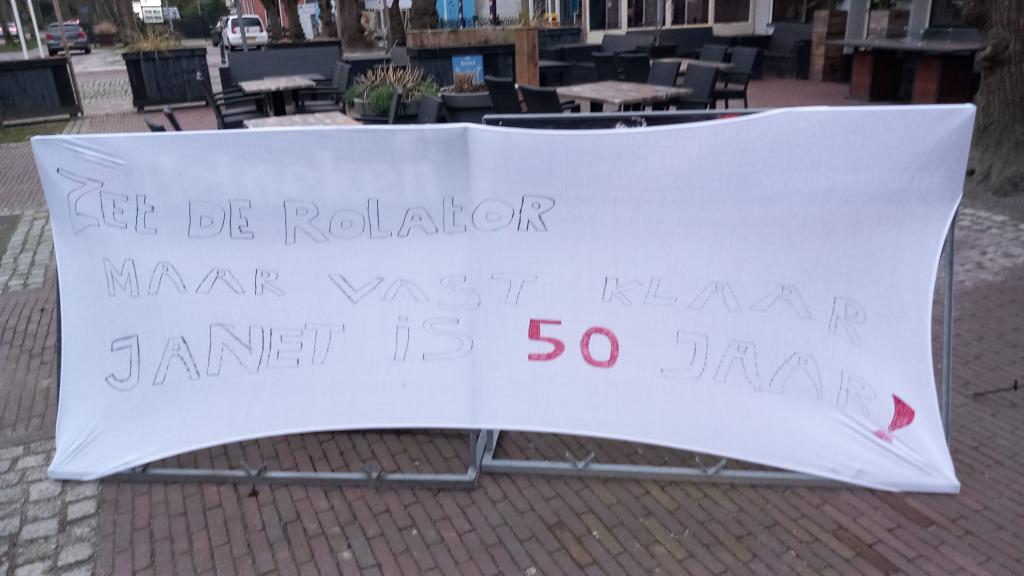 Zet DE ROLATOR
MAAR VAST KLAAR
JANET iS 50 JAAR!